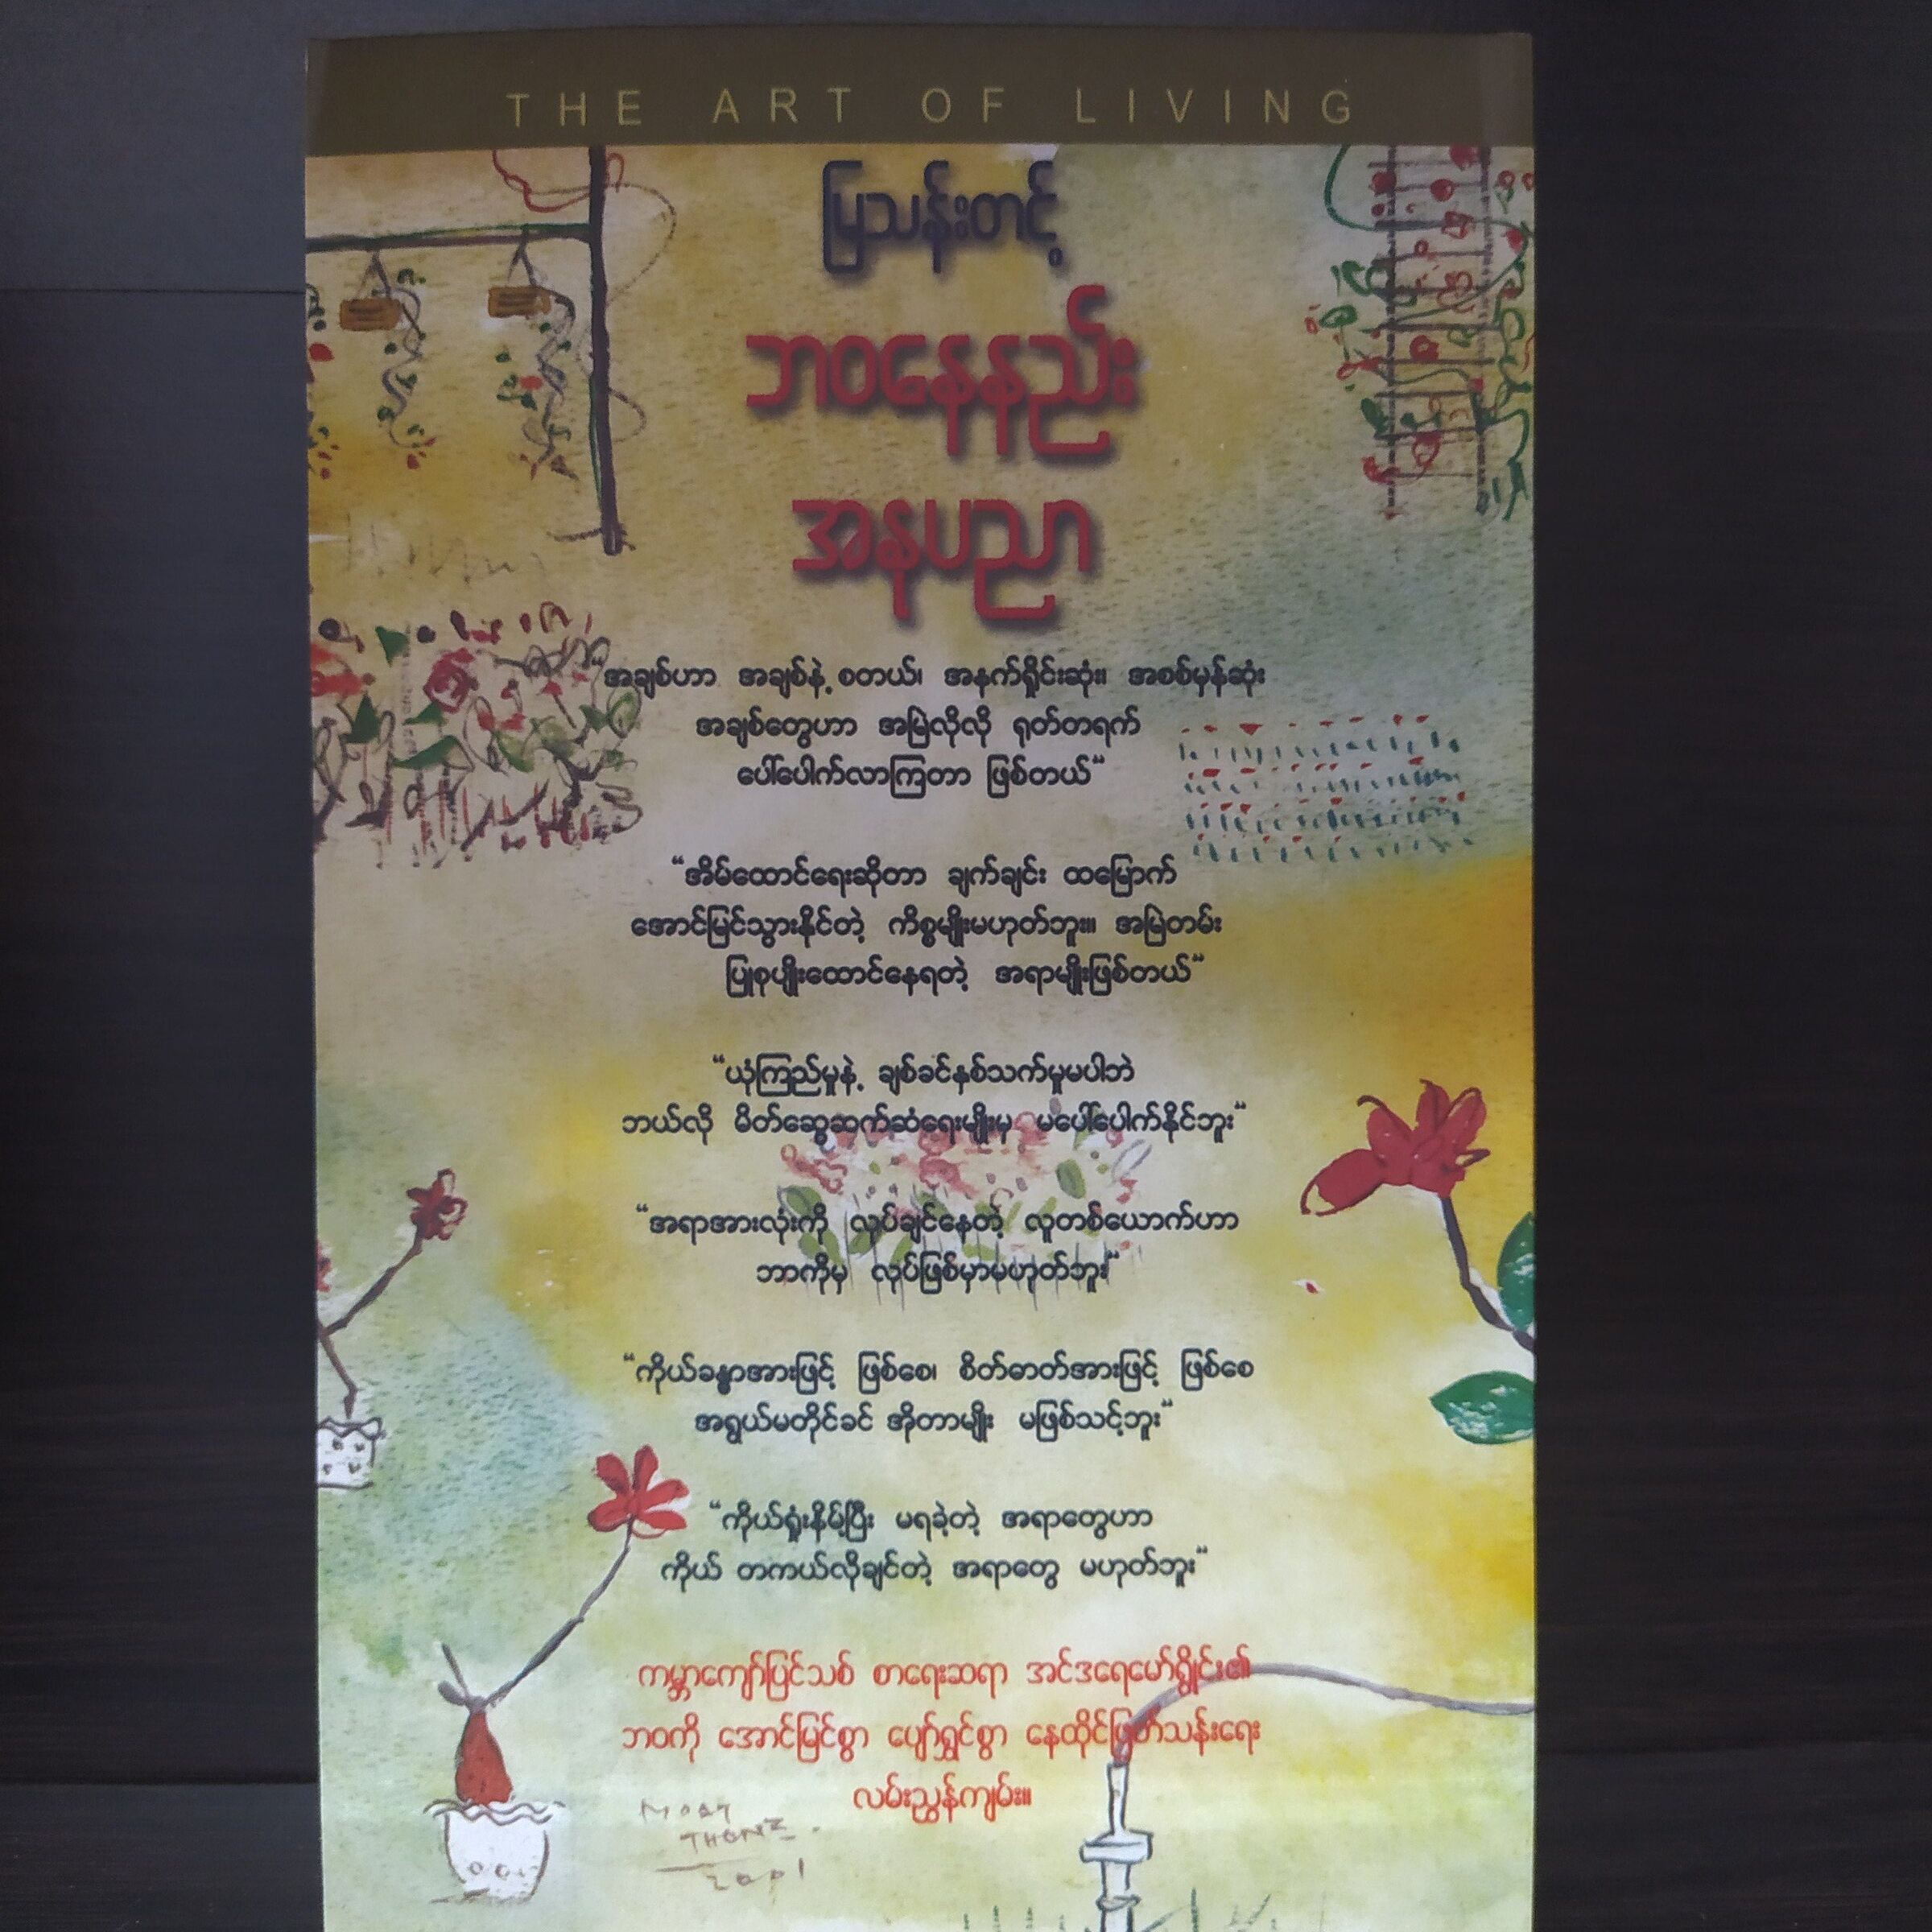 THE ART OF LIVING
မြသန်းတင့်
ဘဝနေနည်း
အနုပညာ
“အချစ်ဟာ အချစ်နဲ့ စတယ်၊ အနက်ရှိုင်းဆုံး၊ အစစ်မှန်ဆုံး
အချစ်တွေဟာ အမြဲလိုလို ရုတ်တရက်
ပေါ်ပေါက်လာကြတာ ဖြစ်တယ်“
“အိမ်ထောင်ရေးဆိုတာ ချက်ချင်း ထမြောက်
အောင်မြင်သွားနိုင်တဲ့ ကိစ္စမျိုးမဟုတ်ဘူး။ အမြဲတမ်း
ပြုစုပျိုးထောင်နေရတဲ့ အရာမျိုးဖြစ်တယ်“
“ယုံကြည်မှုနဲ့ ချစ်ခင်နှစ်သက်မှုမပါဘဲ
ဘယ်လို မိတ်ဆွေဆက်ဆံရေးမျိုးမှ မပေါ်ပေါက်နိုင်ဘူး“
“အရာအားလုံးကို လုပ်ချင်နေတဲ့ လူတစ်ယောက်ဟာ
ဘာကိုမှ လုပ်ဖြစ်မှာမဟုတ်ဘူး“
“ကိုယ်ခန္ဓာအားဖြင့် ဖြစ်စေ၊ စိတ်ဓာတ်အားဖြင့် ဖြစ်စေ
အရွယ်မတိုင်ခင် အိုတာမျိုး မဖြစ်သင့်ဘူး“
“ကိုယ်ရှုံးနိမ့်ပြီး မရခဲ့တဲ့ အရာတွေဟာ
ကိုယ် တကယ်လိုချင်တဲ့ အရာတွေ မဟုတ်ဘူး“
ကမ္ဘာကျော်ပြင်သစ် စာရေးဆရာ အင်ဒရေမော်ရွိုင်း၏
ဘဝကို အောင်မြင်စွာ ပျော်ရွှင်စွာ နေထိုင်ဖြတ်သန်းရေး
လမ်းညွှန်ကျမ်း။
THONE